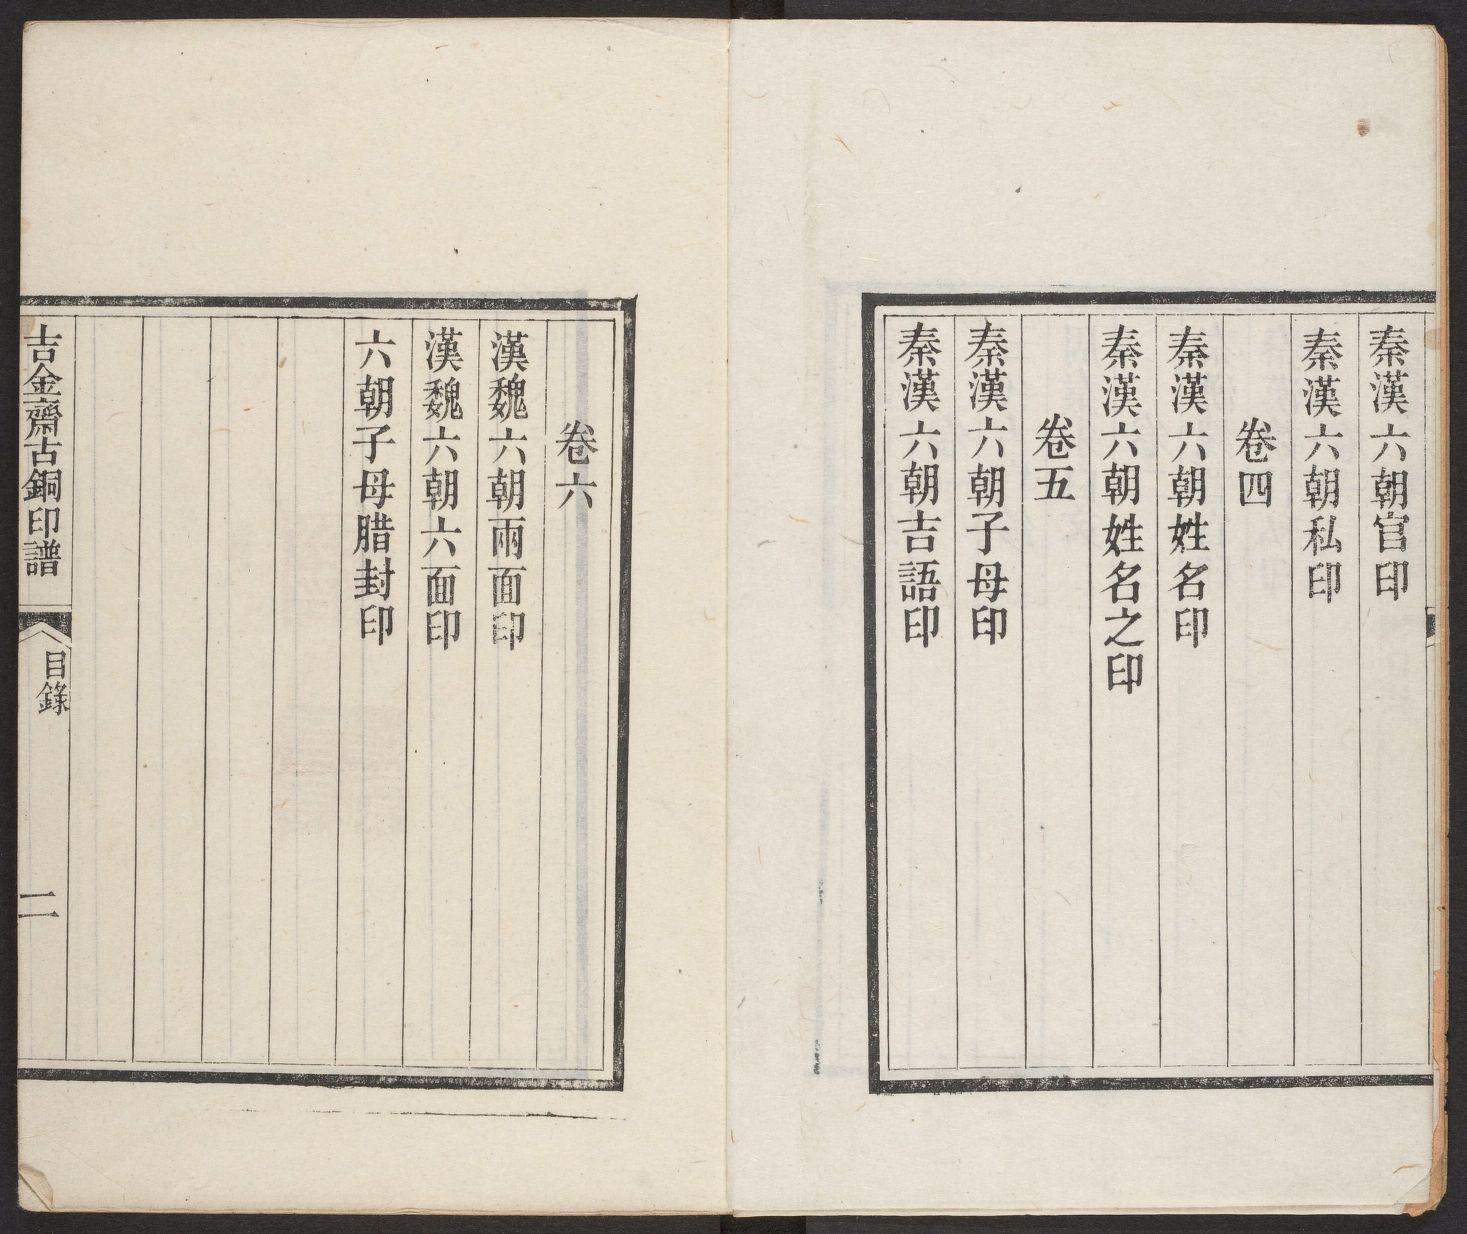 秦漢六朝官印
秦漢六朝私印
卷四
秦漢六朝姓名印
秦漢六朝姓名之印
卷五
秦漢六朝子母印
秦漢六朝吉語印
卷六
漢魏六朝兩面印
漢魏六朝六面印
六朝子母腊封印
吉金齋古銅印譜
目錄
二